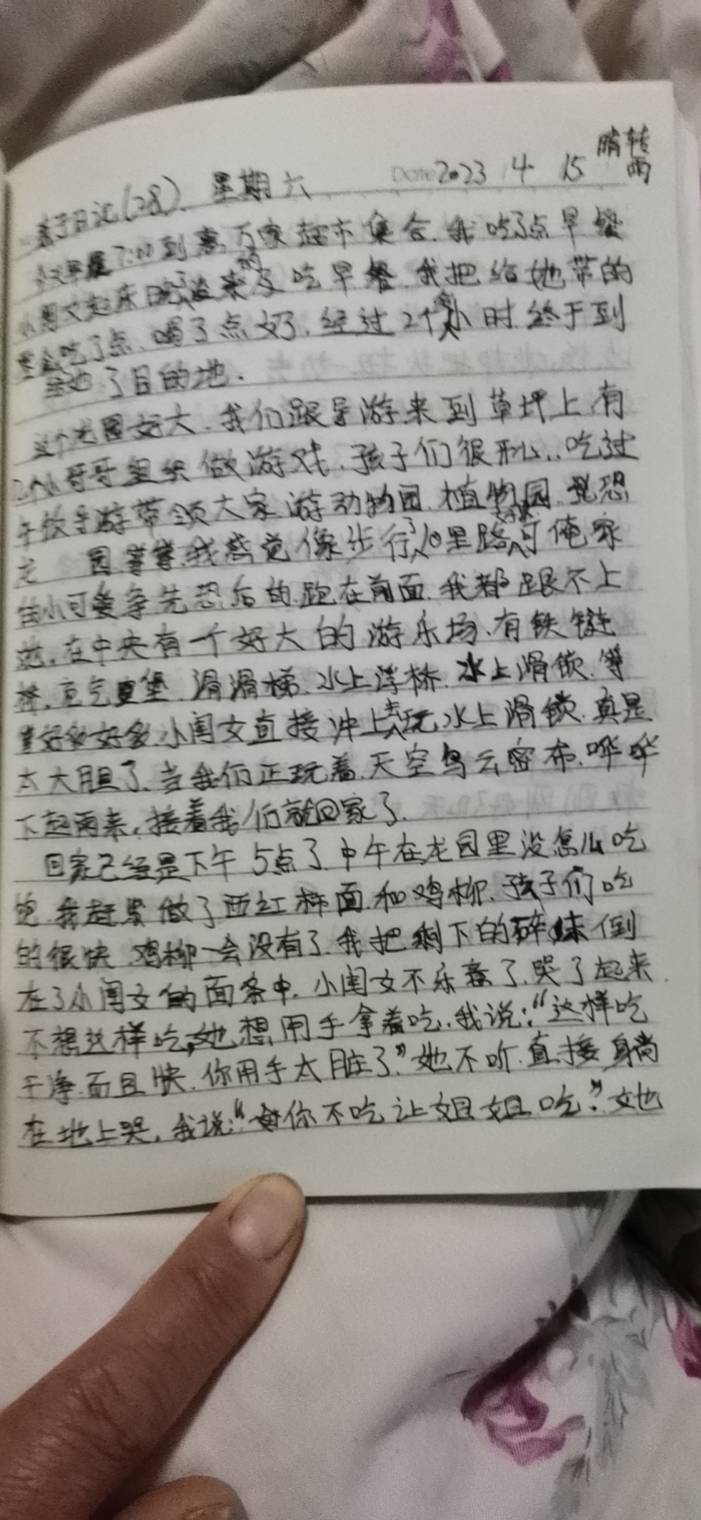 亲子日记(28). 星期六 Date 2023 4 15 晴转雨
早晨7:00到惠万家超市集合.我吃了点早餐
小闺女起床晚了没来的及吃早餐.我把给她带的
吃了点.喝了点奶.经过2个小时终于到
了目的地.
这个龙园好大.我们跟导游来到草坪上.有
2个小哥哥组织做游戏.孩子们很开心.吃过
午饭导游带领大家游动物园.植物园.恐
龙园等等.我感觉像步行了10里路.可俺家
的小可爱争先恐后的跑在前面.我都跟不上
她.在中央有一个好大的游乐场.有铁链
桥.充气堡.滑滑梯.水上浮桥.水上滑锁.等
等好多好多.小闺女直接冲上去玩水上滑锁.真是
太大胆了.当我们正玩着.天空乌云密布.哗哗
下起雨来.接着我们就回家了.
回家已经是下午5点了.中午在龙园里没怎么吃
饱.我赶紧做了西红柿面.和鸡柳.孩子们吃
的很快.鸡柳一会没有了.我把剩下的碎倒
在了小闺女的面条中.小闺女不乐意了.哭了起来.
不想这样吃,她想用手拿着吃.我说:“这样吃
干净.而且快.你用手太脏了”她不听.直接躺
在地上哭.我说:“你不吃让姐姐吃.”她